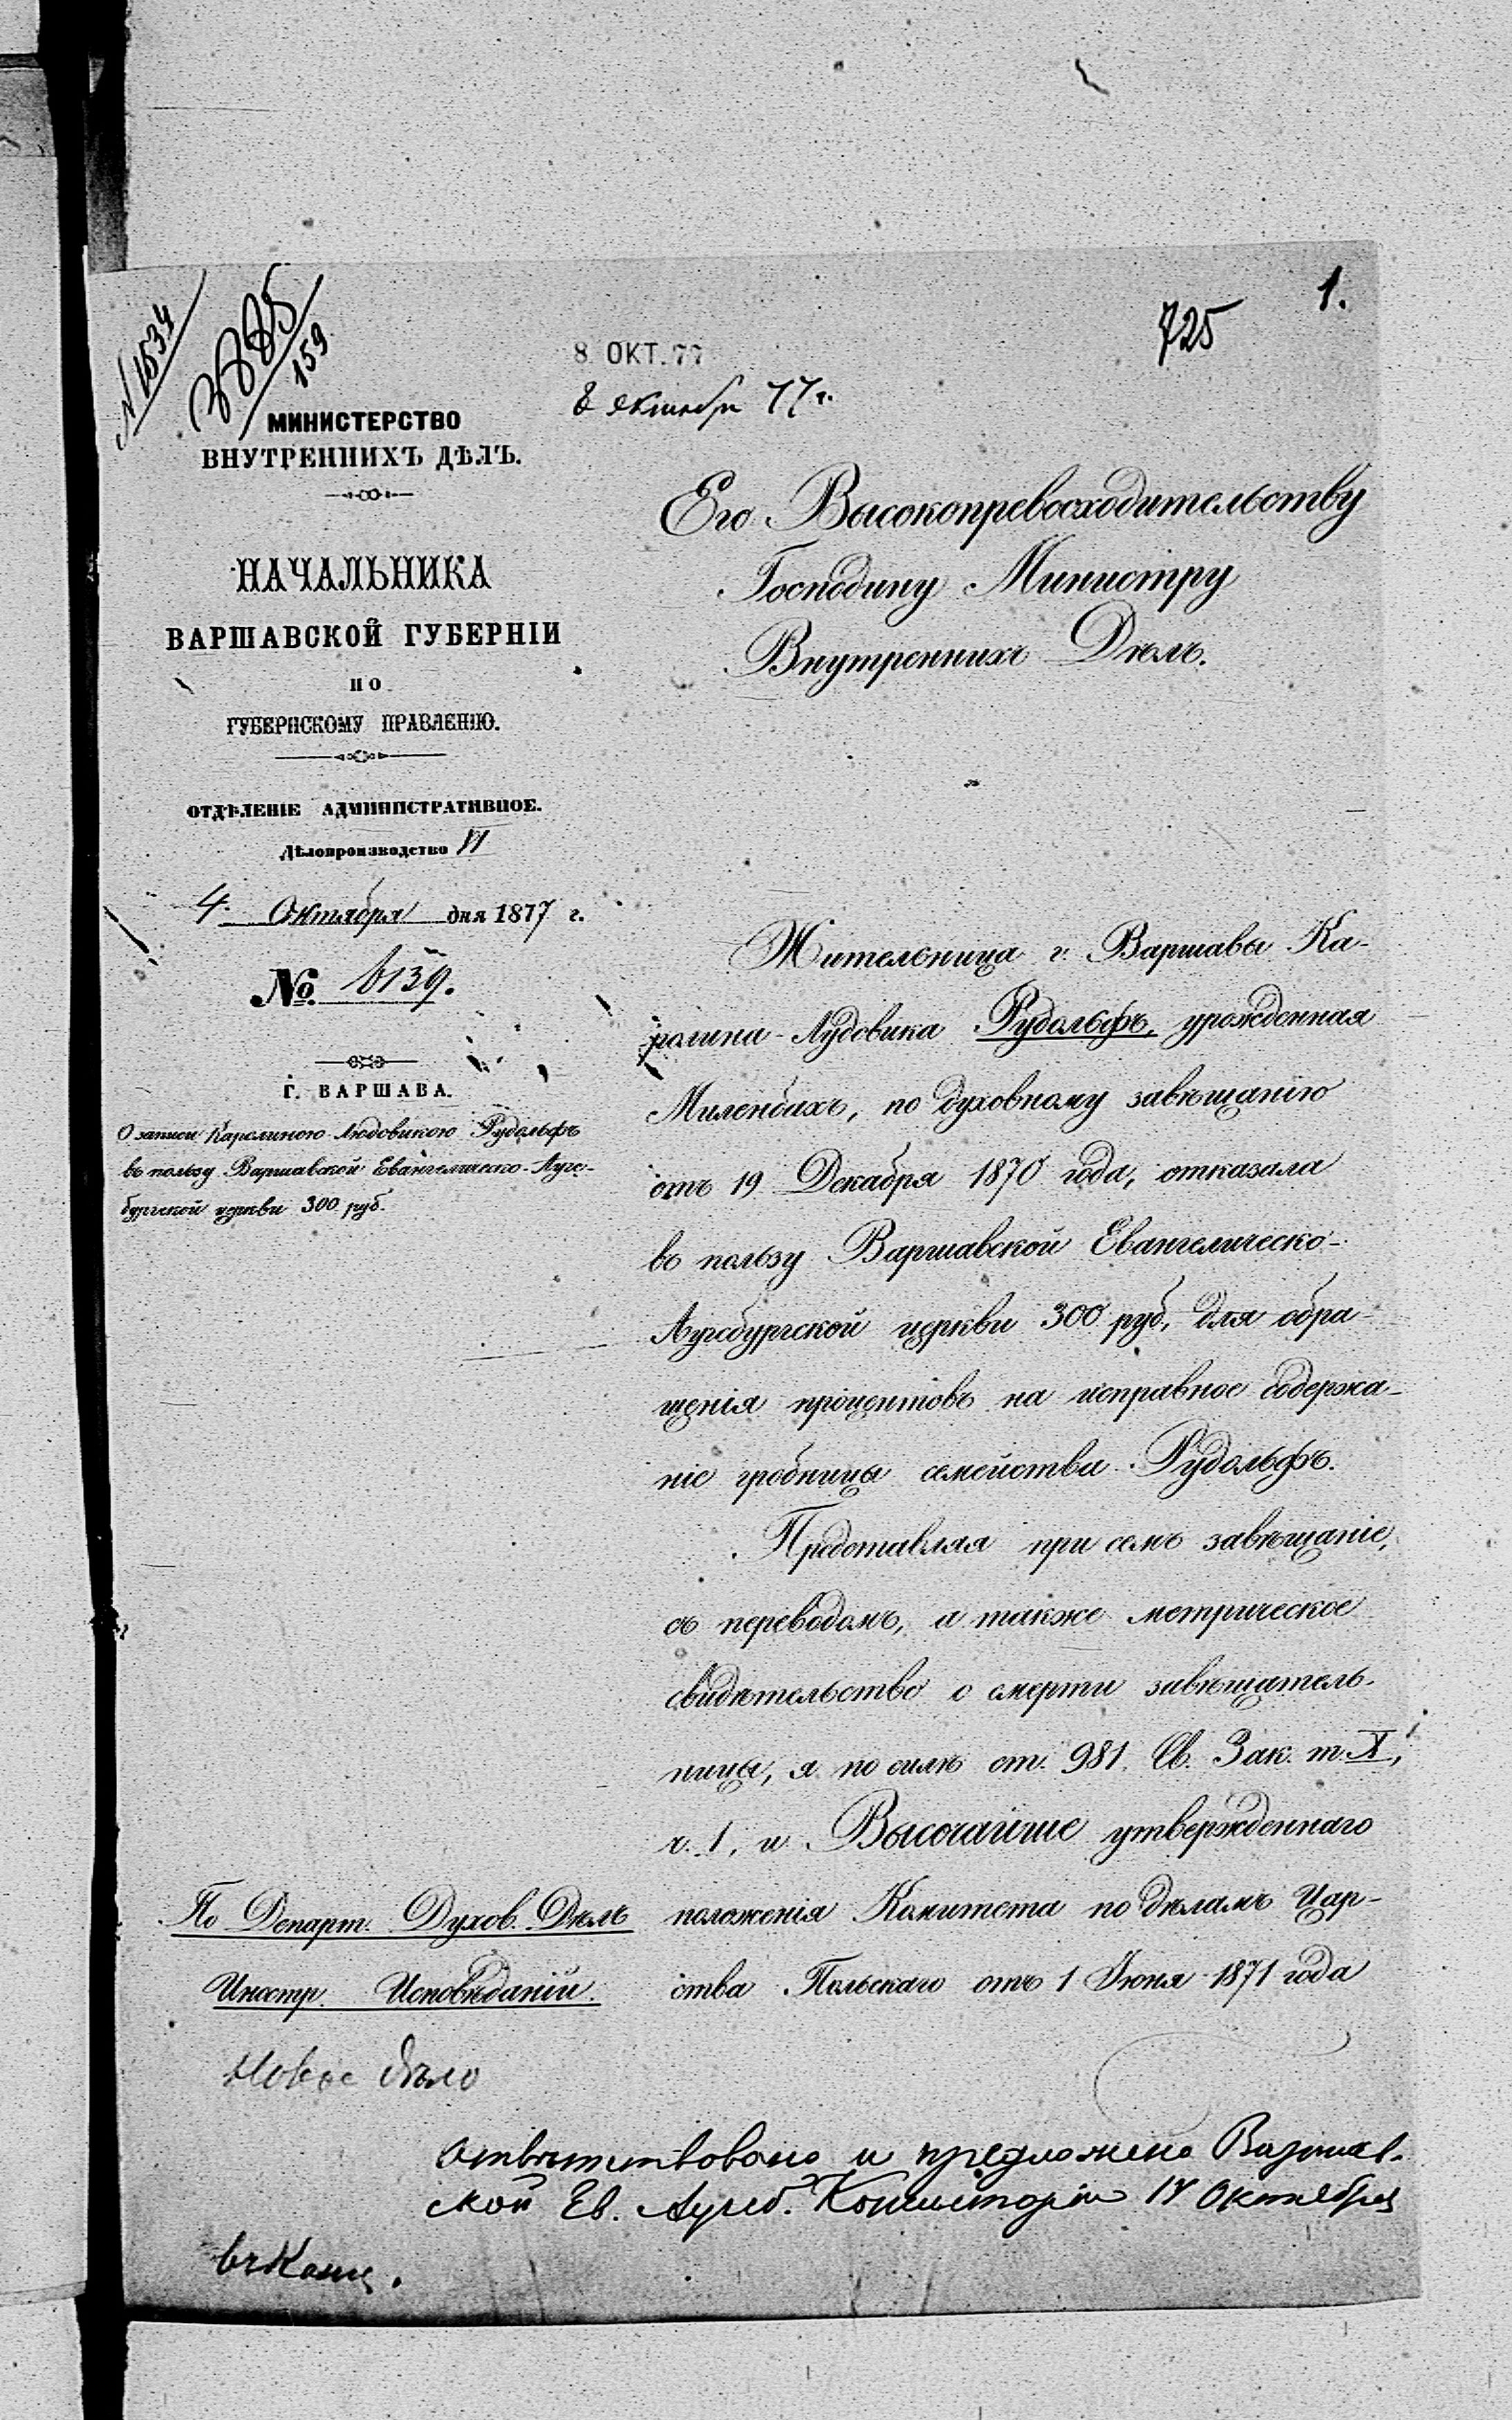 1.
725
№ 1534
3885
159
8 ОКТ. 77
8 октября 77 г.
МИНИСТЕРСТВО
ВНУТРЕННИХЪ ДѢЛЪ.
НАЧАЛЬНИКА
ВАРШАВСКОЙ ГУБЕРНІИ
ПО
ГУБЕРНСКОМУ ПРАВЛЕНІЮ.
ОТДѢЛЕНІЕ АДМИНИСТРАТИВНОЕ.
Дѣлопроизводство VI
4 Октября дня 1877 г.
№ 6139.
Г. ВАРШАВА.
О записи Каролиною Людовикою Рудольфъ
въ пользу Варшавской Евангелическо-Аугс-
бургской церкви 300 руб.
Его Высокопревосходительству
Господину Министру
Внутреннихъ Дѣлъ.
Жительница г. Варшавы Ка-
ролина-Лудовика Рудольфъ, урожденная
Миленбахъ, по духовному завѣщанію
отъ 19 Декабря 1870 года, отказала
въ пользу Варшавской Евангелическо-
Аугсбургской церкви 300 руб., для обра-
щенія процентовъ на исправное содержа-
ніе гробницы семейства Рудольфъ.
Представляя при семъ завѣщаніе,
съ переводомъ, а также метрическое
свидѣтельство о смерти завѣщатель-
ницы, я по силѣ ст. 981. Св. Зак. т. X,
ч. 1, и Высочайше утвержденнаго
положенія Комитета по дѣламъ Цар-
ства Польскаго отъ 1 Іюня 1871 года
По Департ. Духов. Дѣлъ
Иностр. Исповѣданій.
Новое дѣло
Отвѣтствовано и предложено Варшав-
ской Ев. Аугсб. Консисторіи 17 Октября